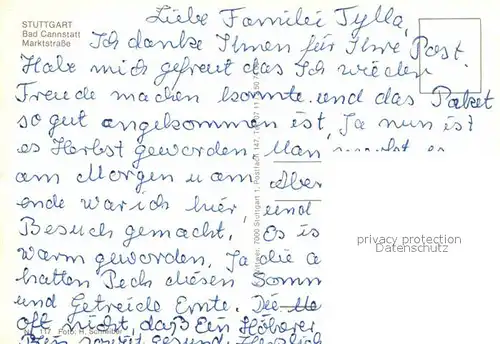 STUTTGART
Bad Cannstatt
Marktstraße
Liebe Familei Tylla,
Ich danke Ihnen für Ihre Post.
Habe mich gefreut das Ich wieder
Freude machen konnte und das Paket
so gut angekommen ist, Ja nun ist
es Herbst geworden Man
am Morgen u am Aber
ende war ich hier, und
Besuch gemacht. Es is
warm geworden. Ja die
hatten Pech diesen Somm
und Getreide Ernte. Die
oft nicht, daß Ein Höherer
sowet gesund. Herzlich
7000 Stuttgart 1, Postfach 147,
117 Foto: H. Schreiber
privacy protection
Datenschutz